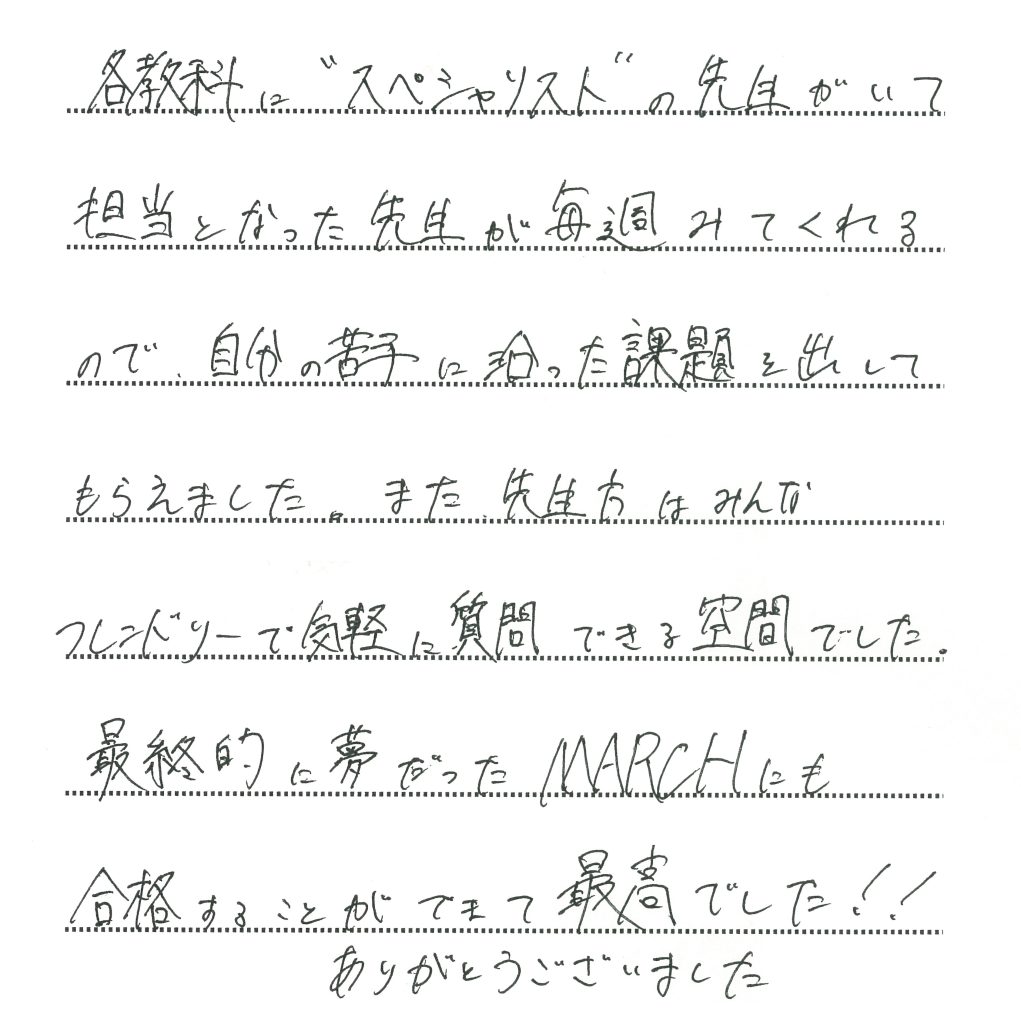 各教科に“スペシャリスト”の先生がいて
担当となった先生が毎週みてくれる
ので、自分の苦手に沿った課題を出して
もらえました。また、先生方はみんな
フレンドリーで気軽に質問できる空間でした。
最終的に夢だったMARCHにも
合格することができて最高でした!!
ありがとうございました